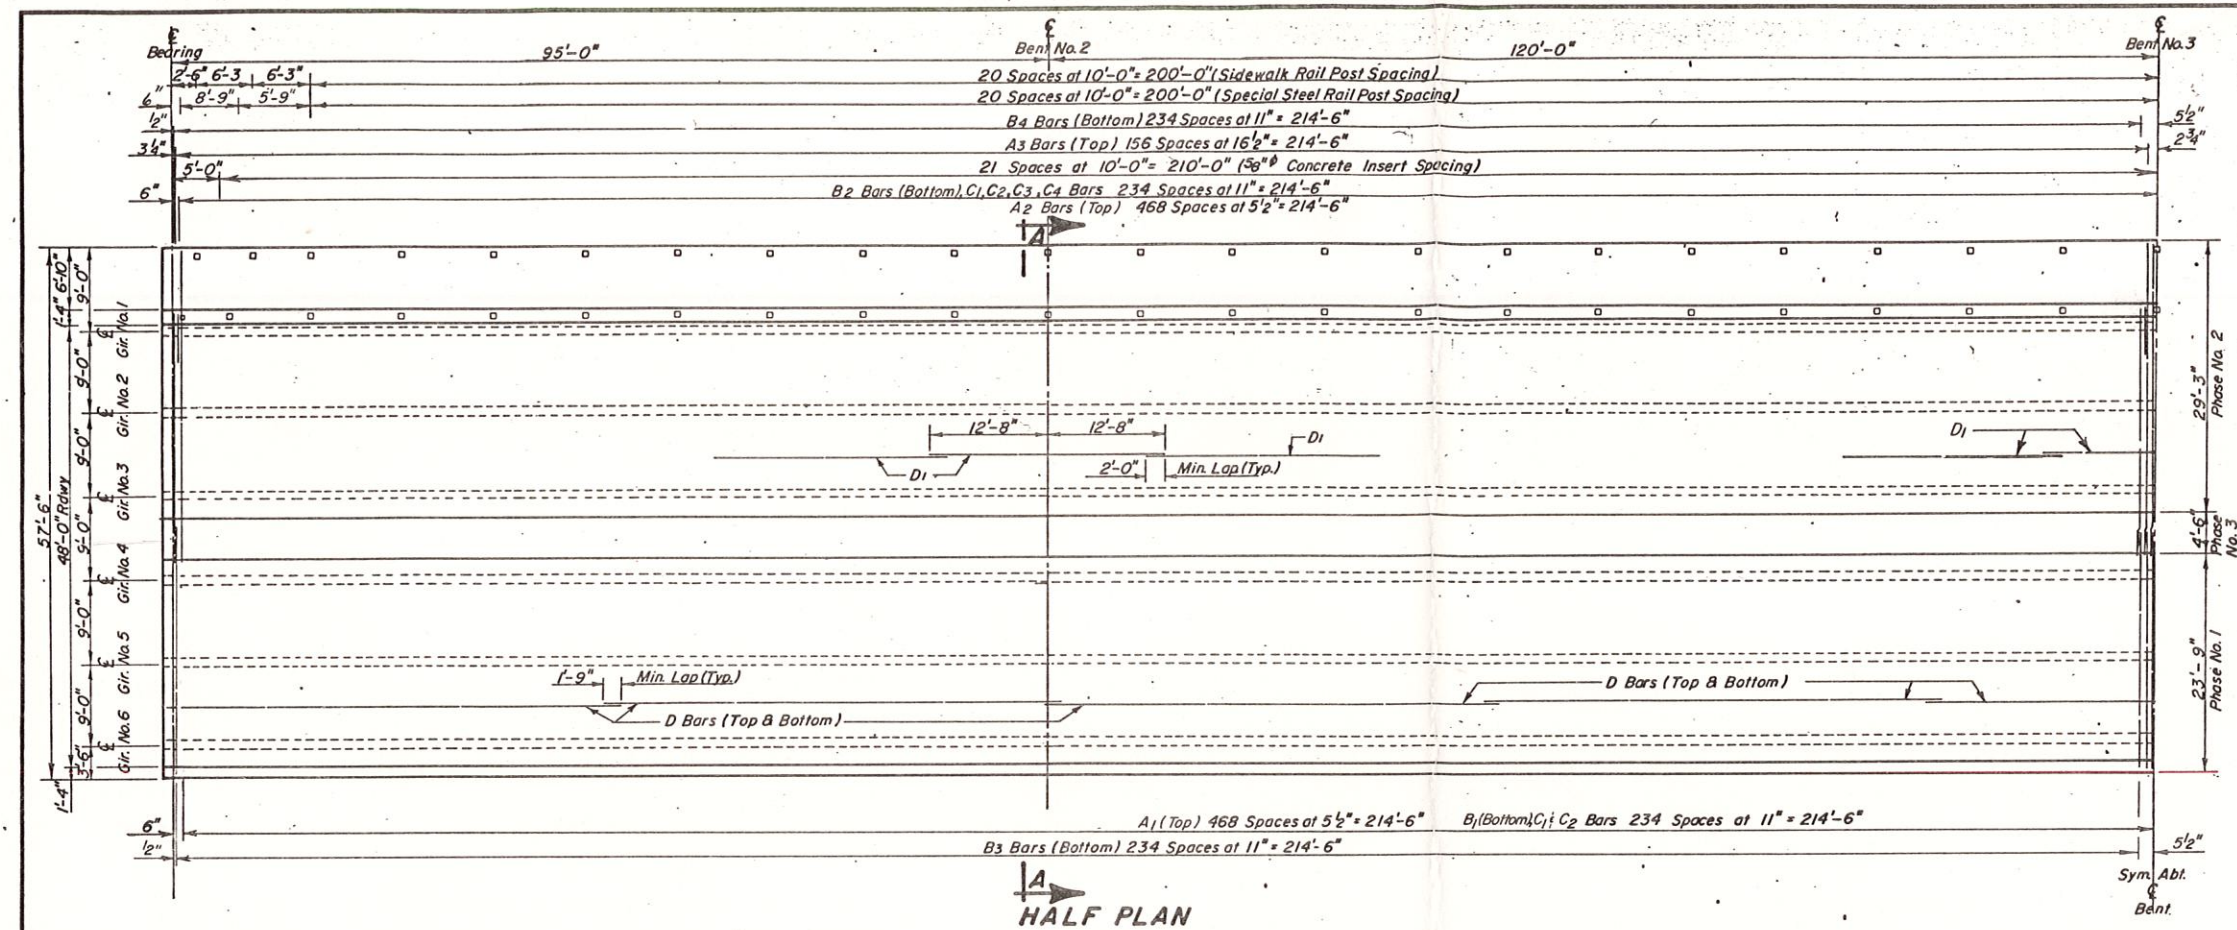 ℄ ℄ ℄
Bearing 95'-0" Bent No.2 120'-0" Bent No.3
2'-6" 6'-3 6'-3" 20 Spaces at 10'-0" = 200'-0" (Sidewalk Rail Post Spacing)
6" 8'-9" 5'-9" 20 Spaces at 10'-0" = 200'-0" (Special Steel Rail Post Spacing)
1/2" B4 Bars (Bottom) 234 Spaces at 11" = 214'-6" 5 1/2"
3 1/4" A3 Bars (Top) 156 Spaces at 16 1/2" = 214'-6" 2 3/4"
5'-0" 21 Spaces at 10'-0" = 210'-0" (5/8" φ Concrete Insert Spacing)
6" B2 Bars (Bottom), C1, C2, C3, C4 Bars 234 Spaces at 11" = 214'-6"
A2 Bars (Top) 468 Spaces at 5 1/2" = 214'-6"
A
57'-6"
1'-4" 6'-10"
48'-0" Rdwy
1'-4"
9'-0"
9'-0"
9'-0"
9'-0"
9'-0"
9'-0"
3'-6"
℄ Gir. No.1
℄ Gir. No.2
℄ Gir. No.3
℄ Gir. No.4
℄ Gir. No.5
℄ Gir. No.6
12'-8" 12'-8" D1 D1
D1 2'-0" Min. Lap (Typ.)
29'-3"
Phase No. 2
4'-6"
Phase No. 3
23'-9"
Phase No. 1
1'-9" Min. Lap (Typ.) D Bars (Top & Bottom)
D Bars (Top & Bottom)
6" A1 (Top) 468 Spaces at 5 1/2" = 214'-6" B1 (Bottom), C1 & C2 Bars 234 Spaces at 11" = 214'-6"
1/2" B3 Bars (Bottom) 234 Spaces at 11" = 214'-6" 5 1/2"
A Sym. Abt.
℄
HALF PLAN Bent.